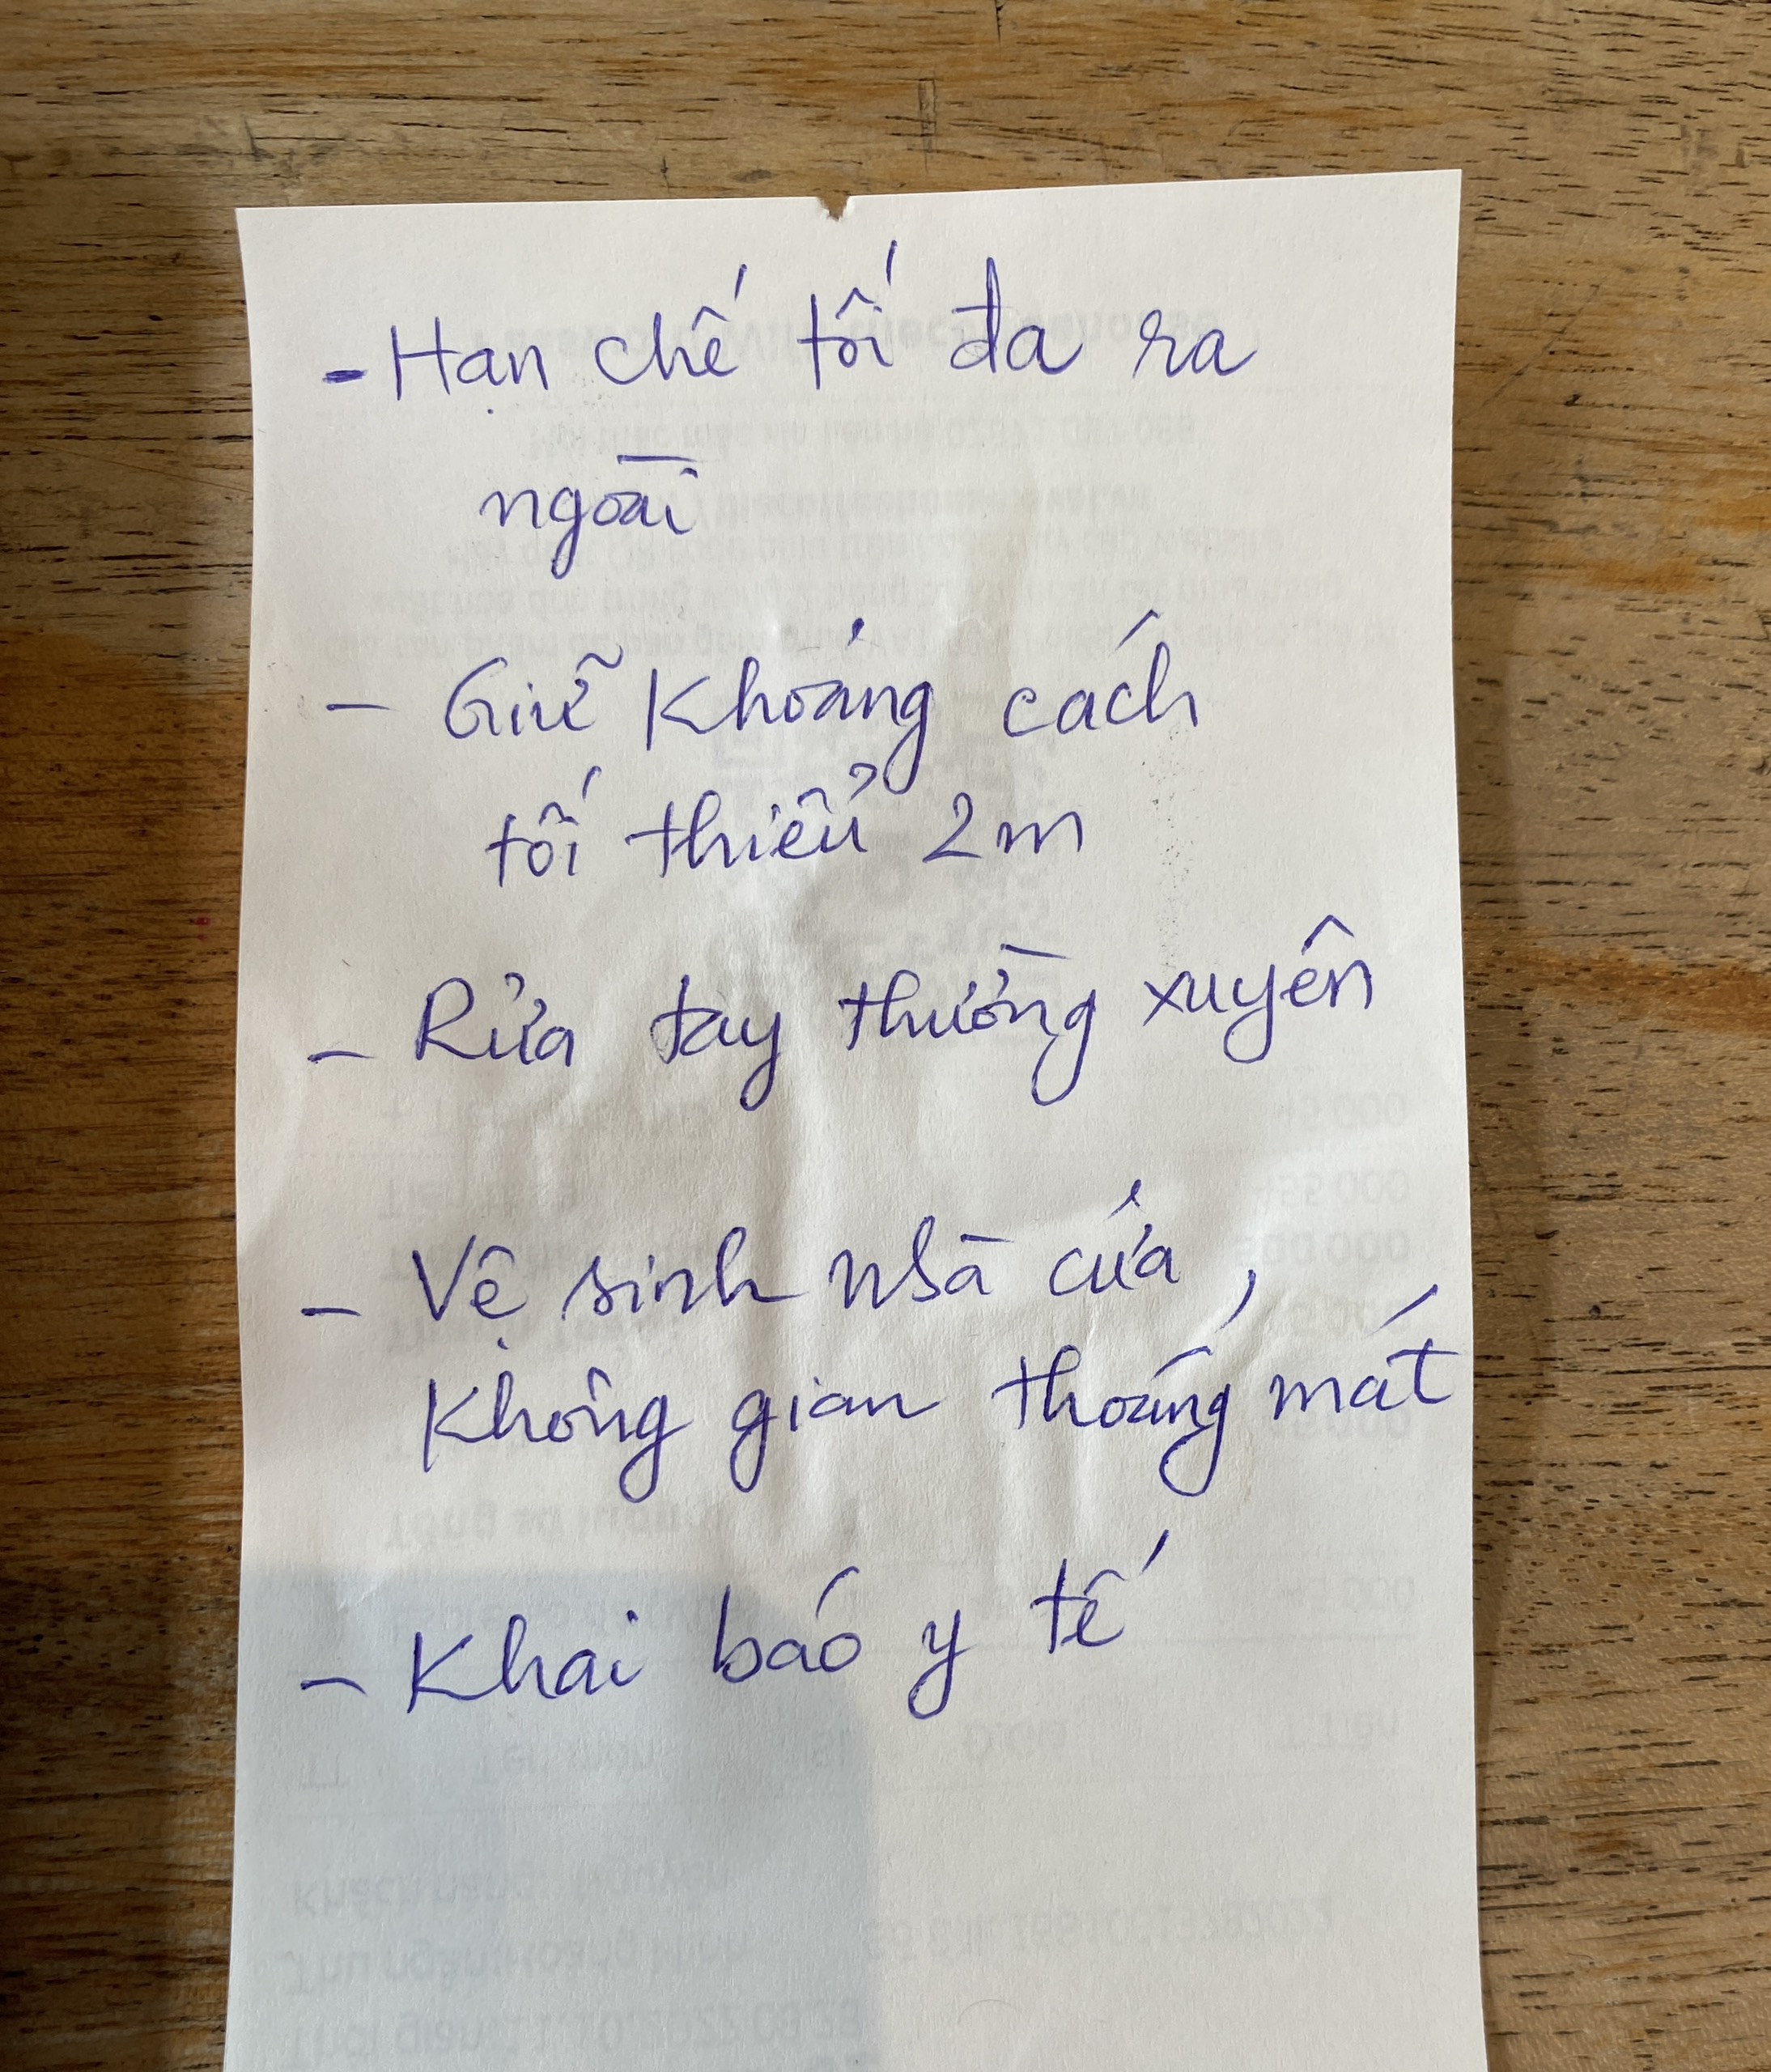 - Hạn chế tối đa ra
ngoài
- Giữ khoảng cách
tối thiểu 2m
- Rửa tay thường xuyên
- Vệ sinh nhà cửa,
không gian thoáng mát
- Khai báo y tế